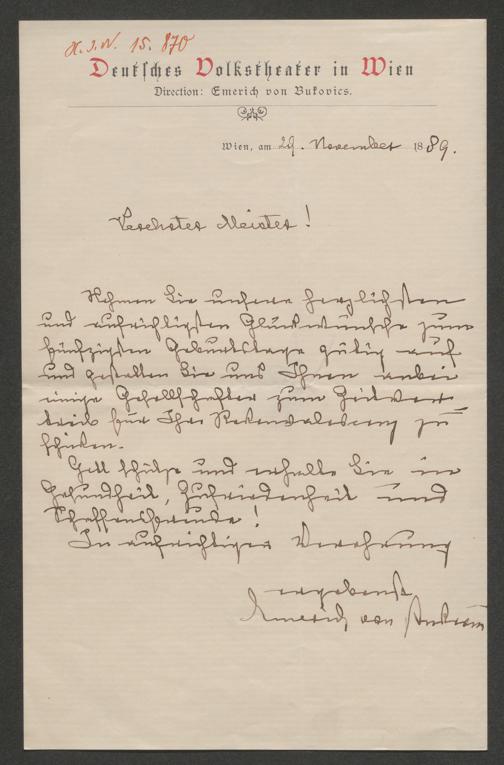 H.I.N. 15.870
Deutsches Volkstheater in Wien
Direction: Emerich von Bukovics.
Wien, am 29. November 1889.
Verehrter Meister!
Nehmen Sie unsere herzlichsten
und aufrichtigsten Glückwünsche zum
fünfzigsten Geburtstage gütig auf
und gestatten Sie uns Ihnen anbei
einige Gesellschafter zum Zeitver
treib für Ihre Rekonvalescenz zu
schicken.
Gott schütze und erhalte Sie in
Gesundheit, Zufriedenheit und
Schaffensfreude!
In aufrichtiger Verehrung
ergebenst
Emerich von Bukovics